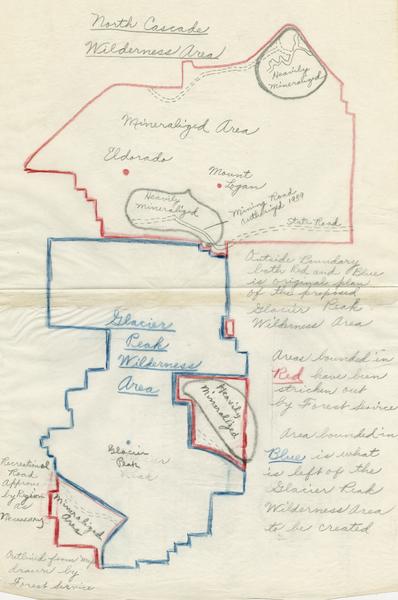 North Cascade
Wilderness Area
Heavily
Mineralized
Mineralized Area
Eldorado
Mount
Logan
Heavily
mineralized
Mining Road
Authorized 1959
State Road
Outside Boundary
both Red and Blue
is original plan
of the proposed
Glacier Peak
Wilderness Area
Glacier
Peak
Wilderness
Area
Areas bounded in
Red have been
stricken out
by Forest Service
Heavily
Mineralized
Area bounded in
Blue is what
is left of the
Glacier Peak
Wilderness Area
to be created
Glacier
Peak
Recreational
Road
Approve
by Region
as
Necessary
Mineralized
Area
Outlined from map
drawn by
Forest Service